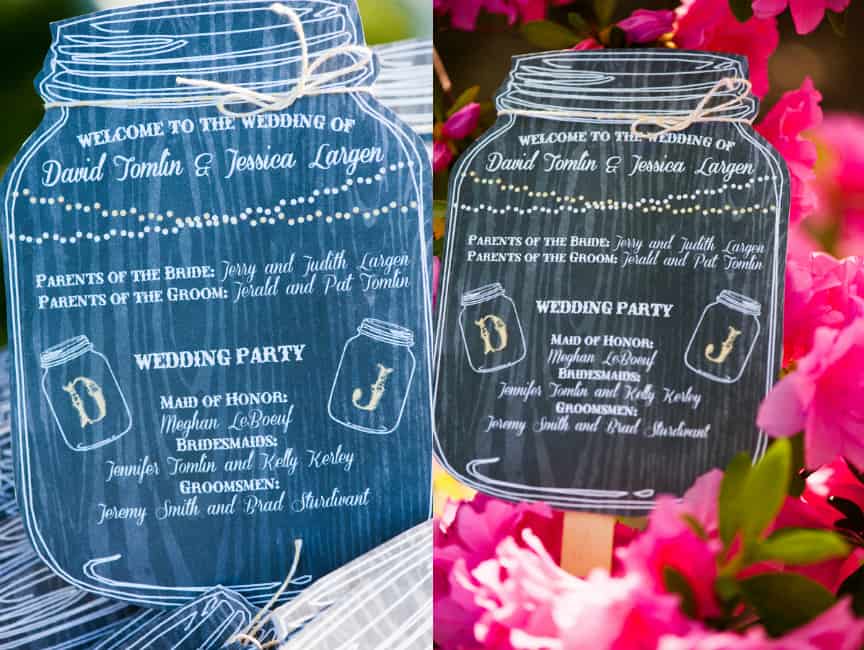 WELCOME TO THE WEDDING OF
David Tomlin & Jessica Largen
PARENTS OF THE BRIDE: Jerry and Judith Largen
PARENTS OF THE GROOM: Jerald and Pat Tomlin
WEDDING PARTY
D
J
MAID OF HONOR:
Meghan LeBoeuf
BRIDESMAIDS:
Jennifer Tomlin and Kelly Kerley
GROOMSMEN:
Jeremy Smith and Brad Sturdivant
WELCOME TO THE WEDDING OF
David Tomlin & Jessica Largen
PARENTS OF THE BRIDE: Jerry and Judith Largen
PARENTS OF THE GROOM: Jerald and Pat Tomlin
WEDDING PARTY
D
J
MAID OF HONOR:
Meghan LeBoeuf
BRIDESMAIDS:
Jennifer Tomlin and Kelly Kerley
GROOMSMEN:
Jeremy Smith and Brad Sturdivant